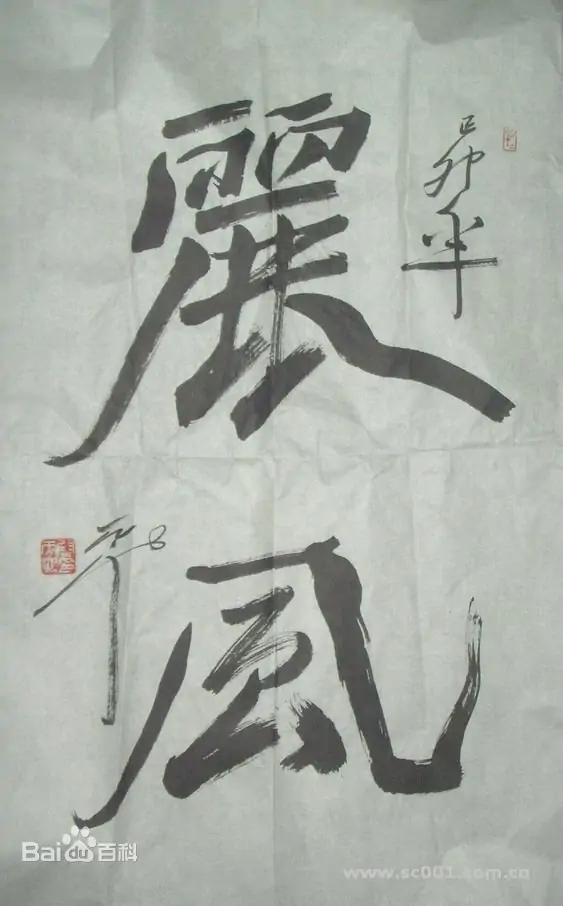 己卯年
麗風
Bai du 百科
www.sc001.com.cn